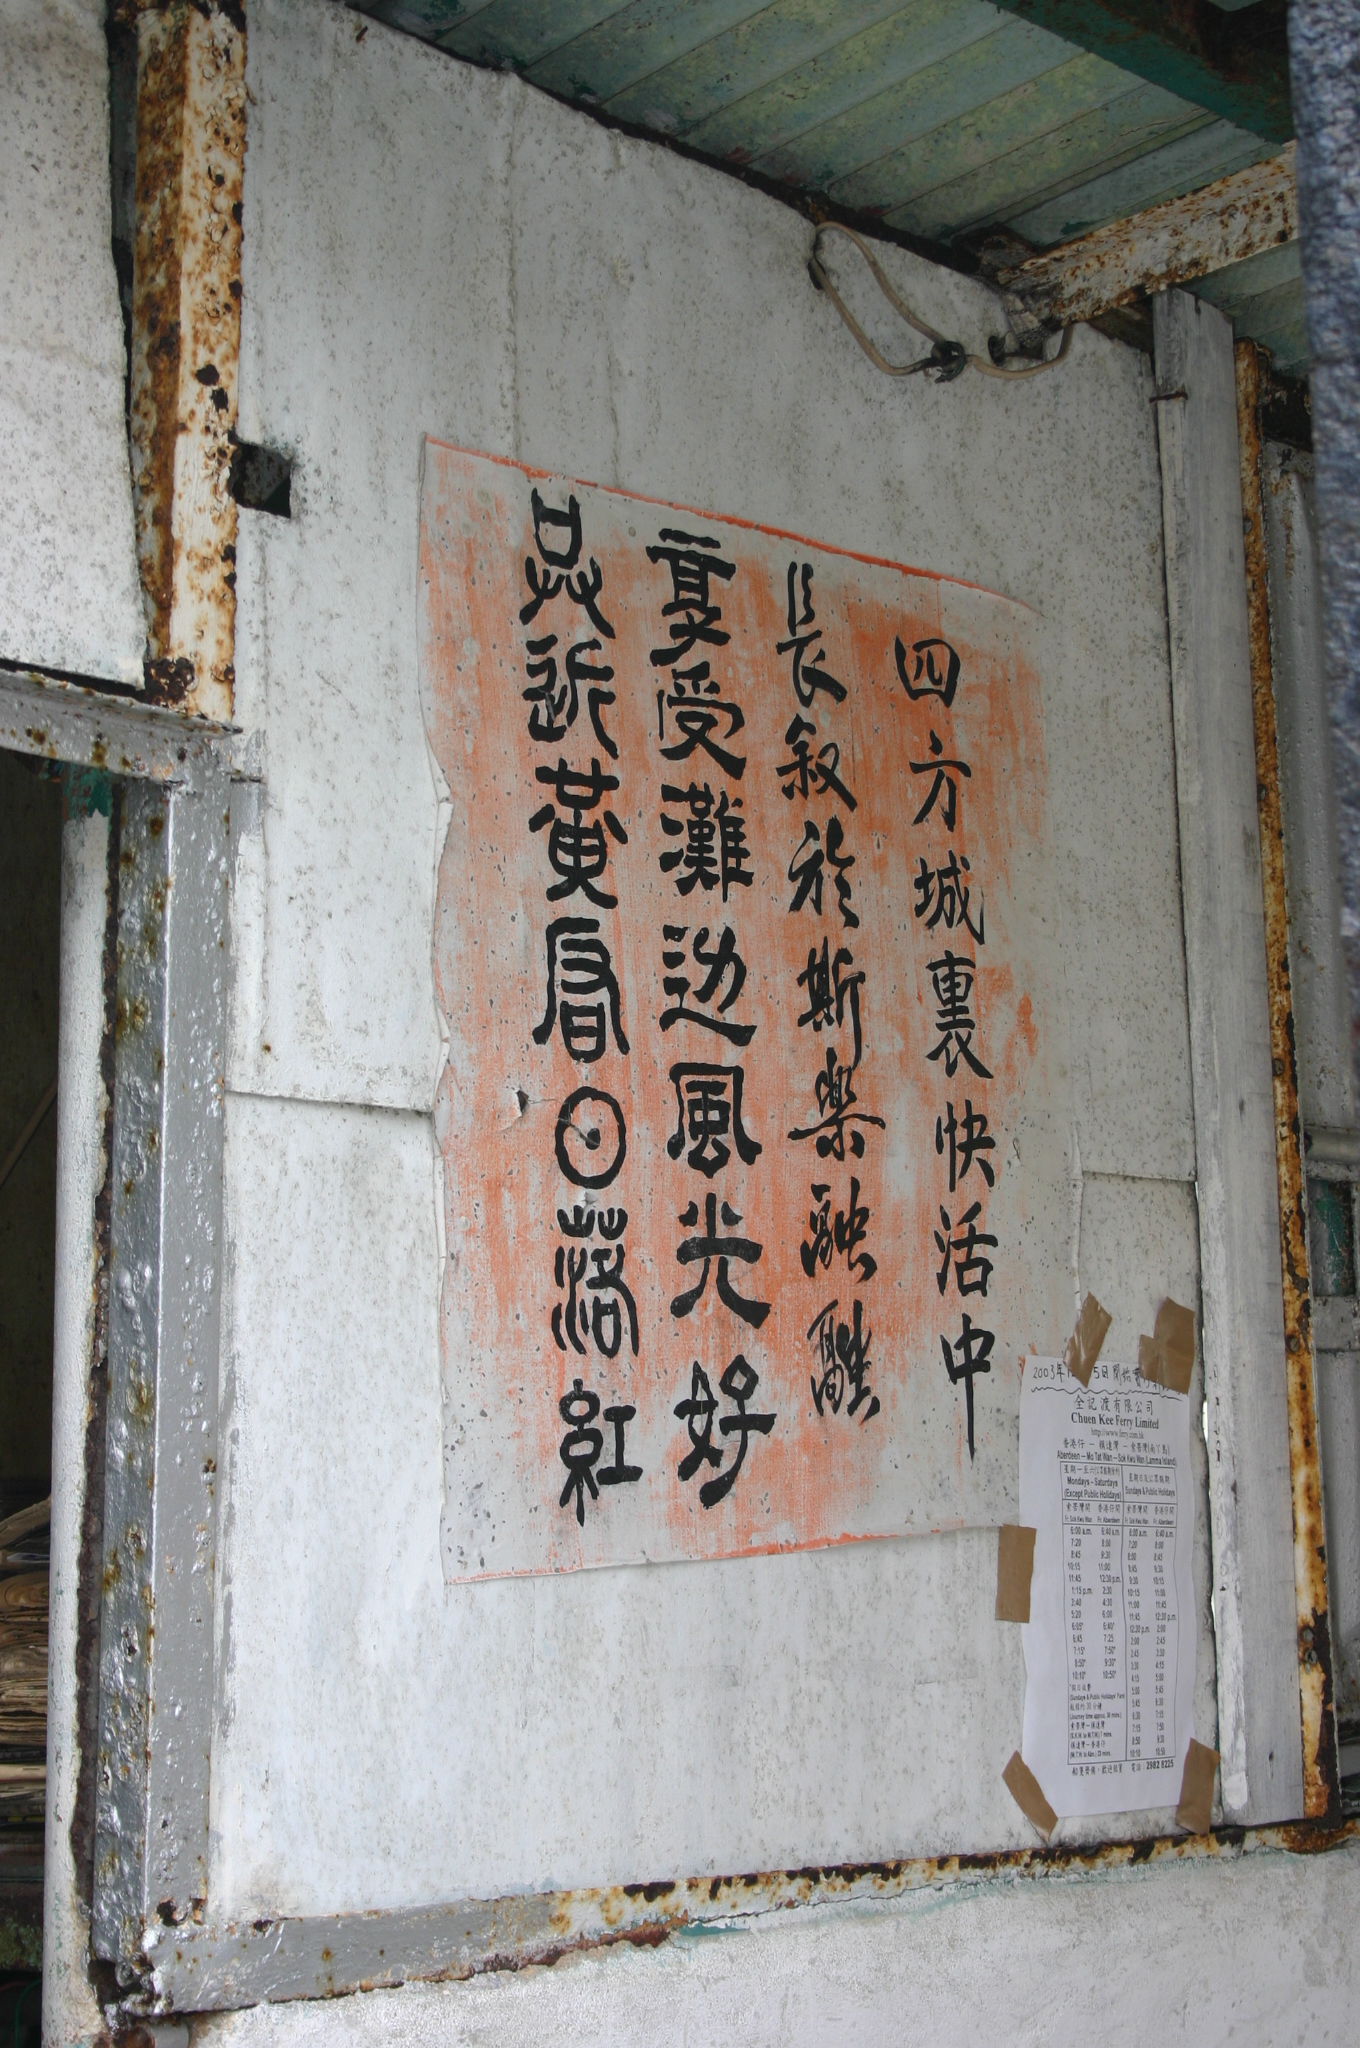 四方城裏快活中
長叙於斯樂融融
享受灘边風光好
只近黃昏日落紅
2003年
全記渡有限公司
Chuen Kee Ferry Limited
http://www.ferry.com.hk
Aberdeen — Mo Tat Wan — Sok Kwu Wan (Lamma Island)
Mondays - Saturdays
(Except Public Holidays)
Sundays & Public Holidays
索罟灣開 香港仔開 索罟灣開 香港仔開
Fr. Sok Kwu Wan Fr. Aberdeen Fr. Sok Kwu Wan Fr. Aberdeen
6:00 a.m. 6:40 a.m. 6:00 a.m. 6:40 a.m.
7:20 8:00 7:20 8:00
8:45 9:30 8:00 8:45
10:15 11:00 8:45 9:30
11:45 12:30 p.m. 9:30 10:15
1:15 p.m. 2:30 10:15 11:00
3:40 4:30 11:00 11:45
5:20 6:00 11:45 12:30 p.m.
6:05* 6:40* 12:30 p.m. 2:00
6:45 7:25 2:00 2:45
7:15* 7:50* 2:45 3:30
8:50* 9:30* 3:30 4:15
10:10* 10:50* 4:15 5:00
5:00 5:45
5:45 6:30
6:30 7:15
7:15 7:50
8:50 9:30
10:10 10:50
電話: 2982 8225